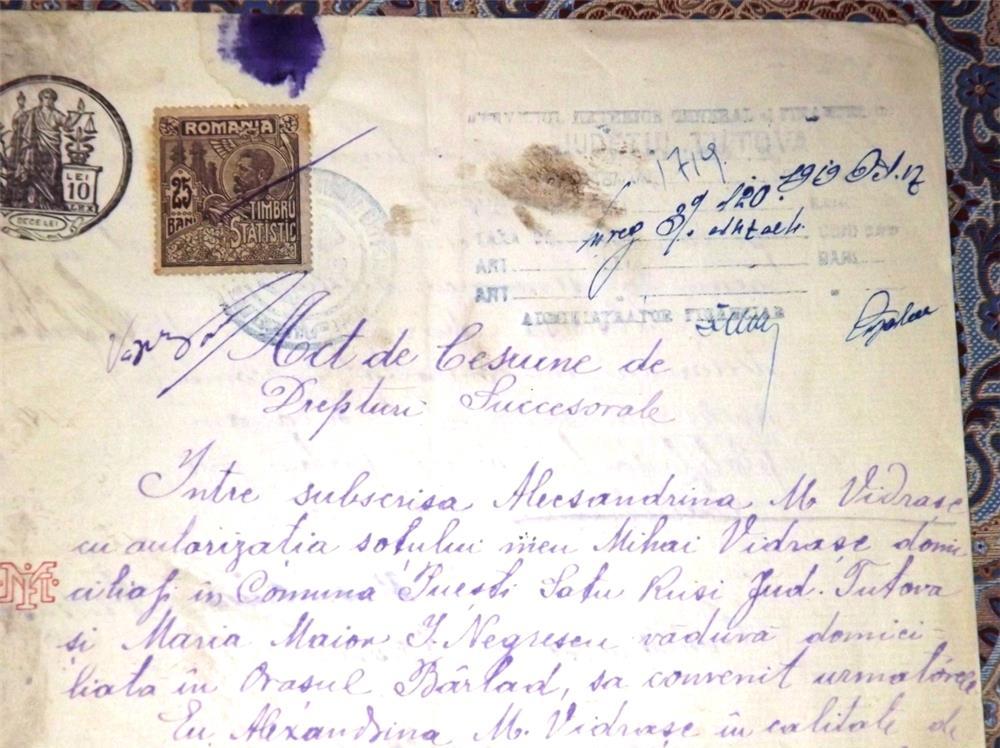 LEI
10
ZECE LEI
ROMANIA
25
BANI
TIMBRU
STATISTIC
GENERAL FINANCIAR
JUDETUL TUTOVA
1719
inreg 120 1919
ART
BANI
ART
ADMINISTRATOR FINANCIAR
Act de Cesiune de
Drepturi Succesorale
Intre subscrisa Alecsandrina M. Vidrașc
cu autorizația soțului meu Mihai Vidrașc domi
ciliați in Comuna Iuești Satu Rusi Jud. Tutova
și Maria Maior I. Negrescu văduvă domici-
liata in Orasul Bârlad, sa convenit urmatórele
Eu Alexandrina M. Vidrașc in calitate de